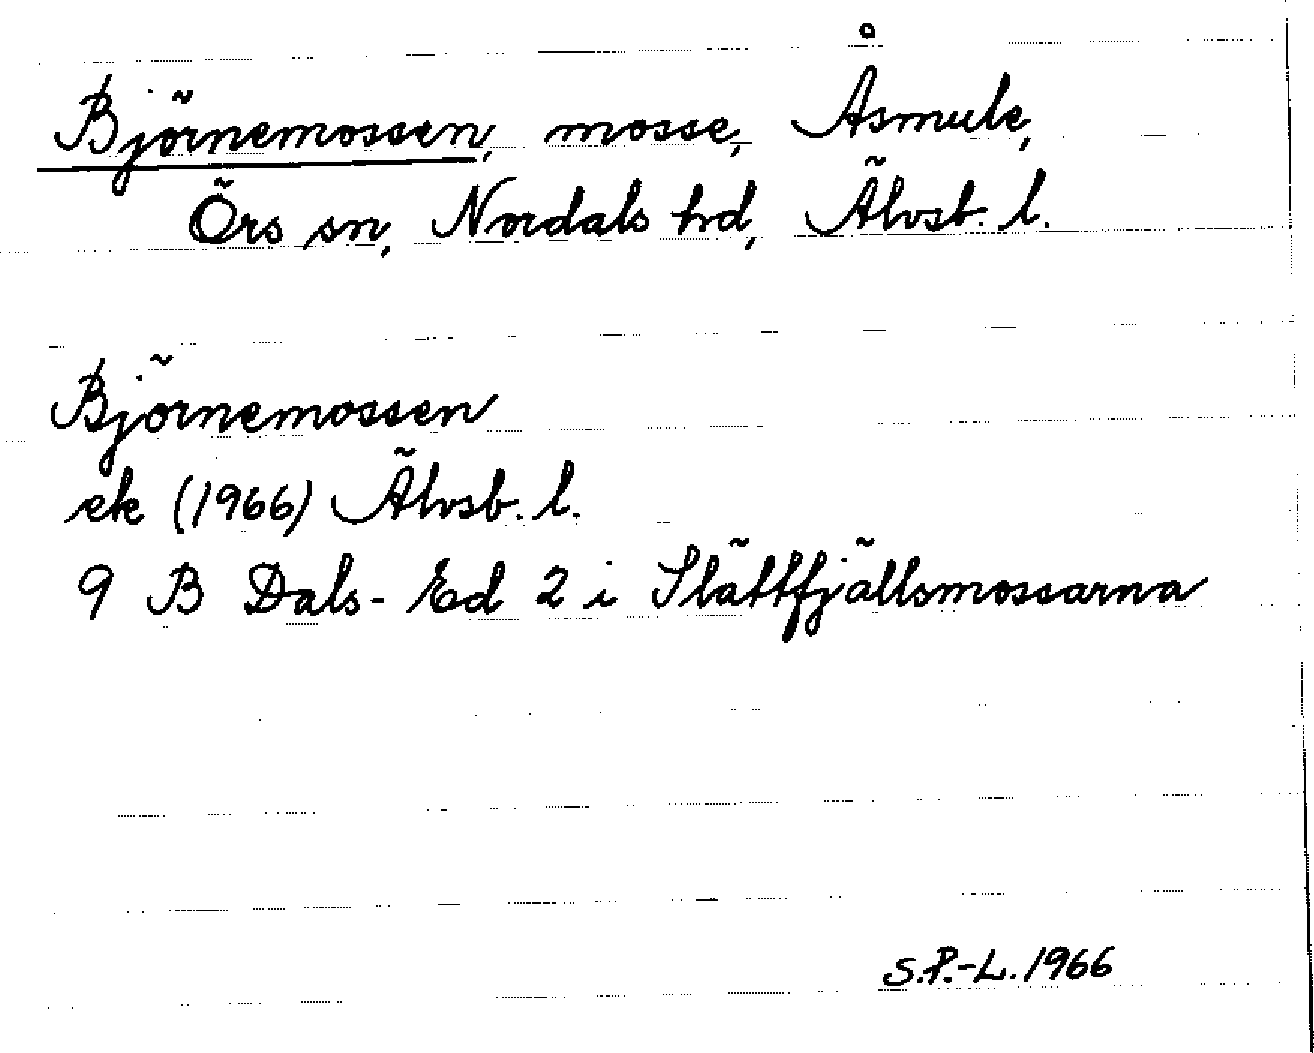 Björnemossen, mosse, Åsmule,
Örs sn, Nordals hd, Älvsb. l.
Björnemossen
ek (1966) Älvsb. l.
9 B Dals-Ed 2 i Slättfjällsmossarna
S.P.-L. 1966